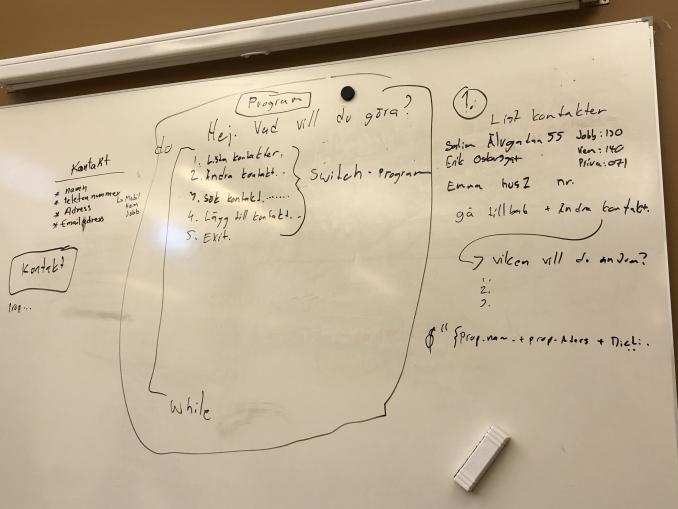 Kontakt
* Namn
* telefonnummer
↳ Mobil
Hem
Jobb
* Adress
* Emailadress
Kontakt
Prop...
Program
do
Hej. Vad vill du göra?
1. Lista kontakter.
2. Ändra kontakt...
3. Sök kontakt.......
4. Lägg till kontakt...
5. Exit.
Switch-program
while
1.
List kontakter
Älvgatan 55 Jobb: 130
Erik Hem: 140
Privat: 071
Emma hus 2 nr.
gå tillbak + Ändra kontakt.
→ vilken vill du ändra?
1.
2.
3.
$"{Prop.nam.+ prop.Aders +